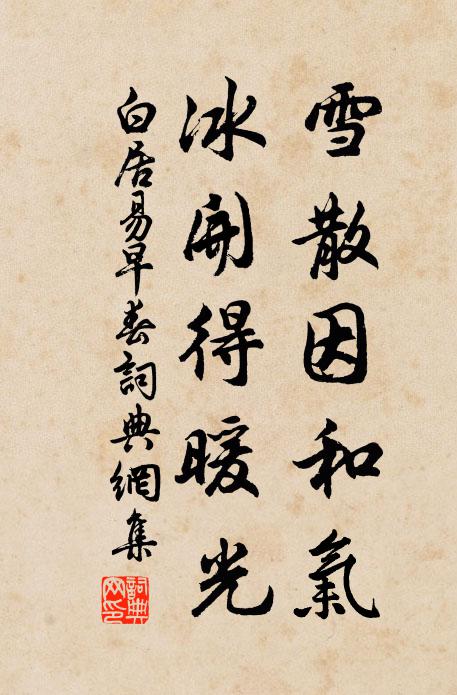 雪散因和氣
冰開得暖光
白居易早春詞典網集
詞典網印